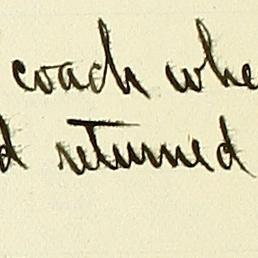 coach whe
d returned